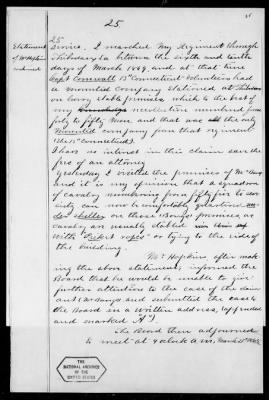 25
25
Statement
of Mr Hopkins
continued
service. I marched my Regiment through
Thibodeaux between the eighth and tenth
days of March 1864, and at that time
Capt Cornwall 13th Connecticut Volunteers had
a mounted company stationed at Thibodeaux
on Bovey stable premises which to the best of
my knowledge recollection numbered from
forty to fifty men and that was all the only
mounted company from that regiment
(the 13th Connecticut).
I have no interest in this claim save the
fee of an attorney
Yesterday I visited the premises of Mr Bangs
and it is my opinion that a squadron
of cavalry numbering from fifty five to
sixty can now be comfortably quartered
under shelter on those Bangs premises as
cavalry are usually stabled
with "Picket ropes" or tying to the side of
the building.
Mr Hopkins after mak-
ing the above statement, informed the
Board that he would be unable to give
further attention to the case of the claim
ant (Mr Bangs and submitted the case to
the Board in a written address, (appended
and marked "A").
The Board then adjourned
to meet at 9 o'clock a.m,
THE
NATIONAL ARCHIVES
OF THE
UNITED STATES